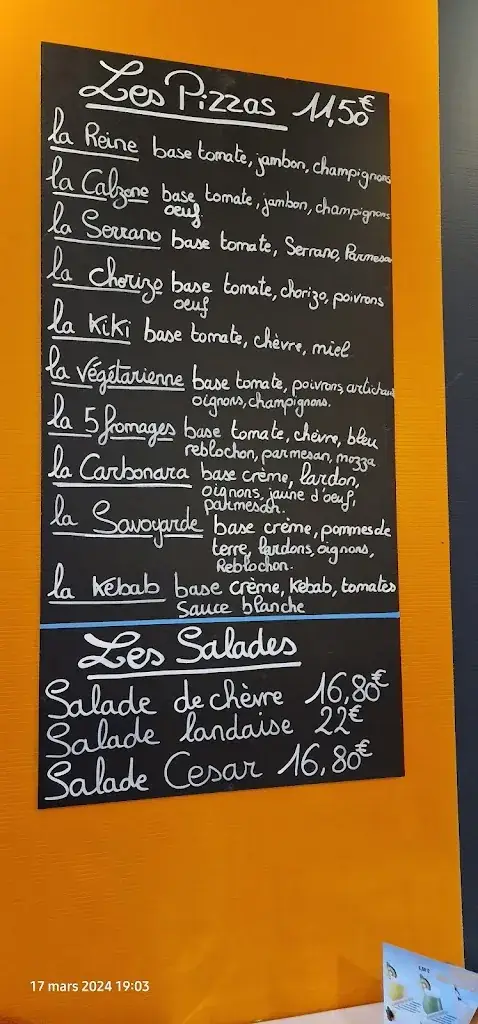 Les Pizzas 11,50€
la Reine base tomate, jambon, champignons
la Calzone base tomate, jambon, champignons
oeuf.
la Serrano base tomate, Serrano, Parmesan
la chorizo base tomate, chorizo, poivrons
oeuf
la KiKi base tomate, chèvre, miel
la végétarienne base tomate, poivrons, artichaut
oignons, champignons.
la 5 fromages base tomate, chèvre, bleu
reblochon, parmesan, mozza
la Carbonara base crème, lardon,
oignons, jaune d'oeuf,
parmesan.
la Savoyarde base crème, pommes de
terre, lardons, oignons,
Reblochon.
la Kebab base crème, Kebab, tomates
Sauce blanche
Les Salades
Salade de chèvre 16,80€
Salade landaise 22€
Salade Cesar 16,80€
17 mars 2024 19:03